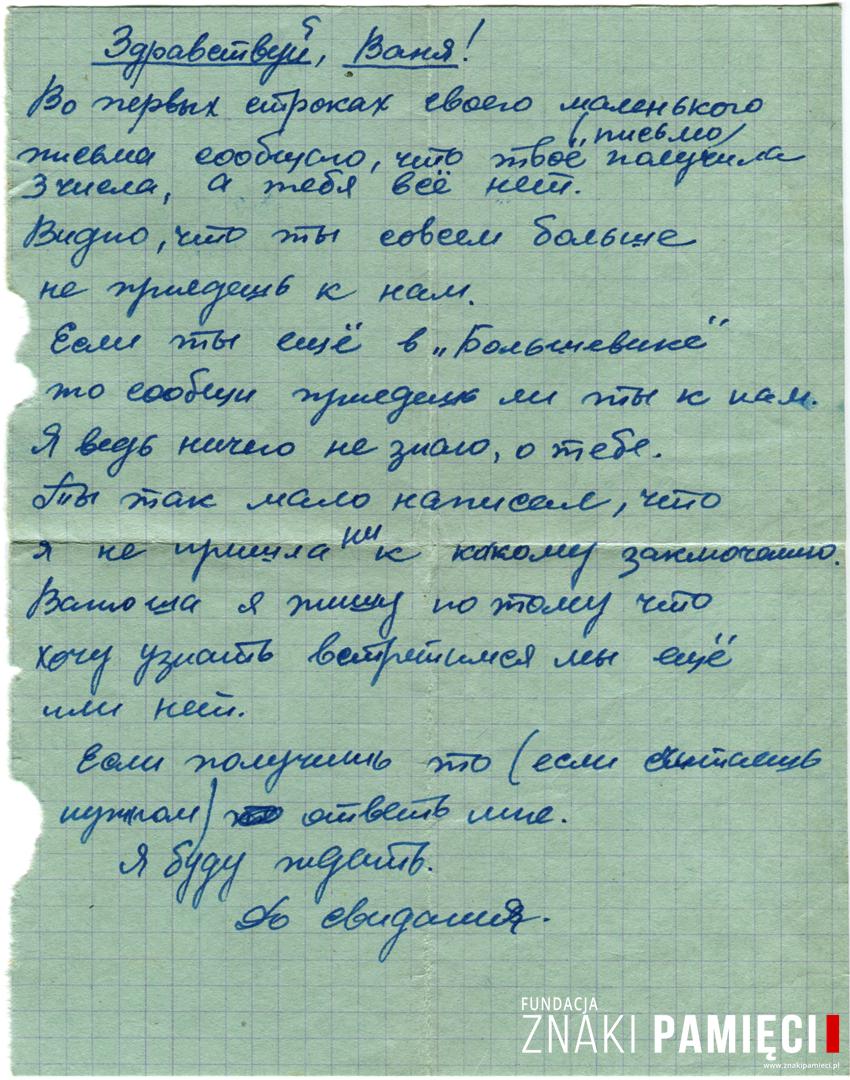 Здравствуй, Ваня!
Во первых строках своего маленького
письма сообщаю, что твоё письмо получила
3 числа, а тебя всё нет.
Видно, что ты совсем больше
не приедешь к нам.
Если ты ещё в „Большевике"
то сообщи приедешь ли ты к нам.
Я ведь ничего не знаю, о тебе.
Ты так мало написал, что
я не пришла ни к какому заключению.
Ванюша я пишу потому что
хочу узнать встретимся мы ещё
или нет.
Если получишь то (если считаешь
нужном) ответь мне.
Я буду ждать.
До свидания.
FUNDACJA
ZNAKI PAMIĘCI
www.znakipamieci.pl